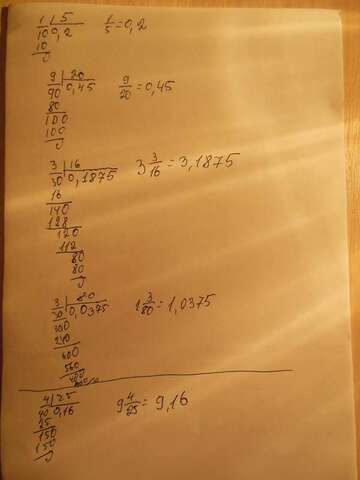 1 | 5 1/5 = 0,2
10 0,2
10
0
9 | 20 9/20 = 0,45
90 0,45
80
100
100
0
3 | 16 3 3/16 = 3,1875
30 0,1875
16
140
128
120
112
80
80
0
3 | 80 1 3/80 = 1,0375
30 0,0375
300
240
600
560
400
4 | 25 9 4/25 = 9,16
40 0,16
25
150
150
0